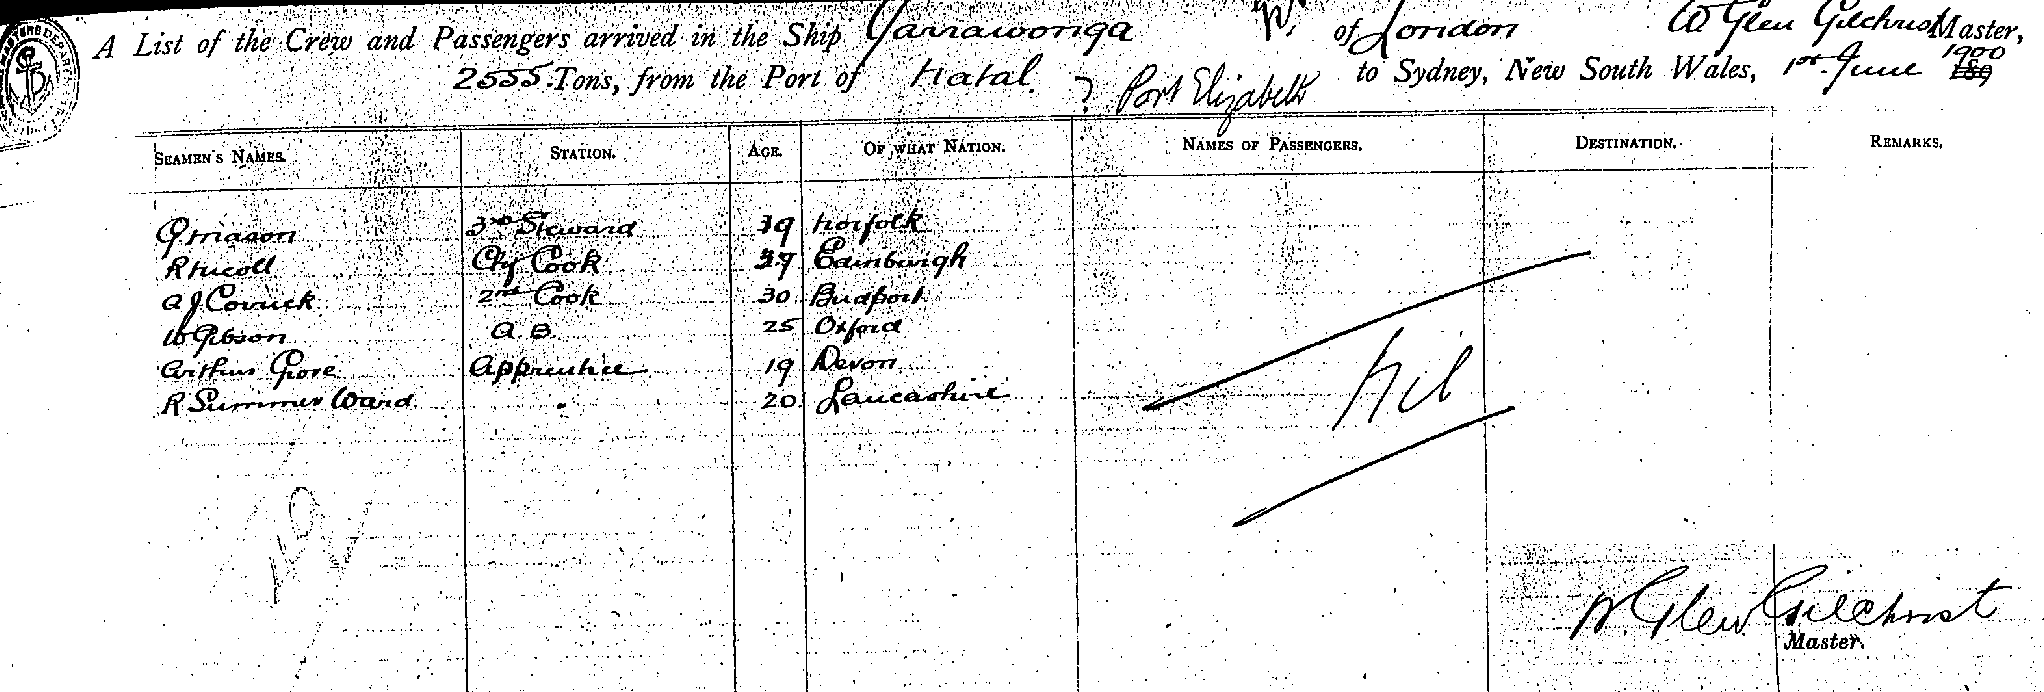 A List of the Crew and Passengers arrived in the Ship Yarrawonga of London W Glen Gilchrist Master,
2555 Tons, from the Port of Natal. ? Port Elizabeth to Sydney, New South Wales, 1st June 1900 189
SEAMEN'S NAMES. STATION. AGE. OF WHAT NATION. NAMES OF PASSENGERS. DESTINATION. REMARKS.
G Mason 3rd Steward 39 Norfolk
R Nicoll Chf Cook 39 Edinburgh
A J Cornick 2nd Cook 30 Bridport
W Gibson A.B. 25 Oxford
Arthur Gore Apprentice 19 Devon
R Summer Ward " 20 Lancashire
Nil
W. Glen Gilchrist
Master.